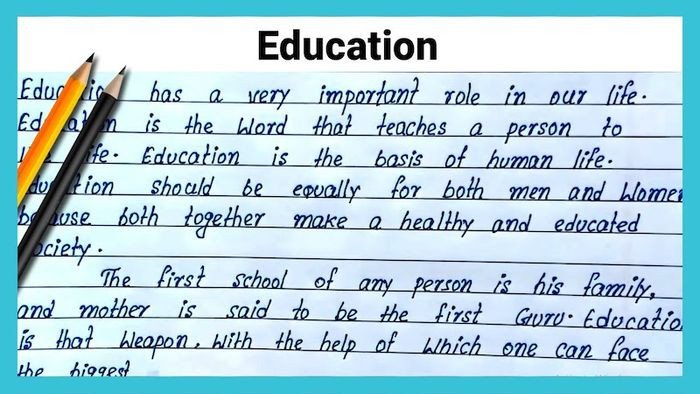 Education
Education has a very important role in our life.
Education is the word that teaches a person to
life. Education is the basis of human life.
Education should be equally for both men and Women
because both together make a healthy and educated
society.
The first school of any person is his family,
and mother is said to be the first Guru. Educatio
is that Weapon, With the help of Which one can face
the biggest